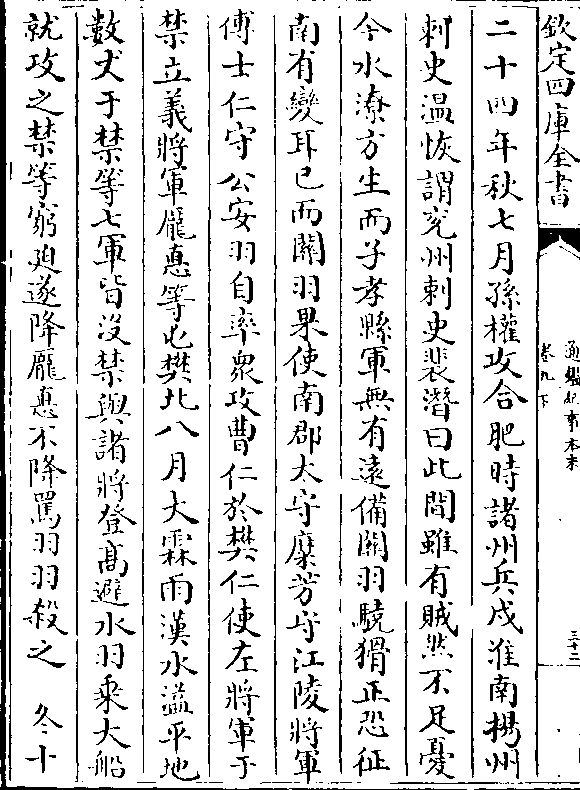 欽定四庫全書
通鑑紀事本末
卷九下
三十二
二十四年秋七月孫權攻合肥時諸州兵戍淮南揚州
刺史溫恢謂兗州刺史裴潛曰此間雖有賊然不足憂
今水潦方生而子孝縣軍無有遠備關羽驍猾正恐征
南有變耳已而關羽果使南郡太守糜芳守江陵將軍
傅士仁守公安羽自率衆攻曹仁於樊仁使左將軍于
禁立義將軍龐惪等屯樊北八月大霖雨漢水溢平地
數丈于禁等七軍皆沒禁與諸將登高避水羽乘大船
就攻之禁等窮廹遂降龐惪不降罵羽羽殺之　冬十